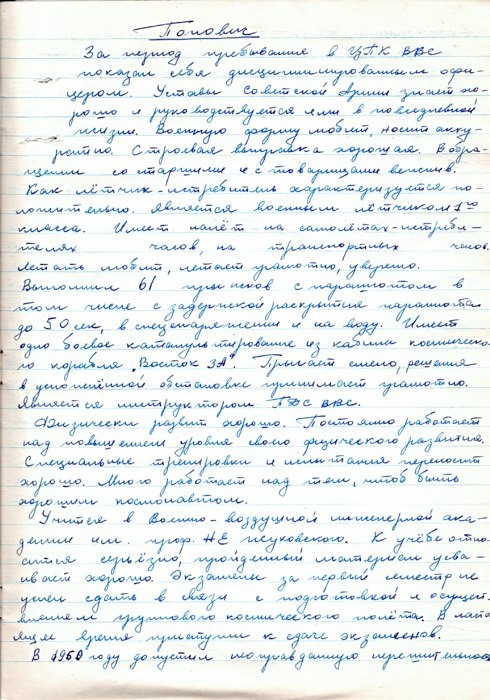 Попович
За период пребывание в ЦПК ВВС
показал себя дисциплинированным офи-
цером. Уставы Советской Армии знает хо-
рошо и руководствуется ими в повседневной
жизни. Военную форму любит, носит акку-
ратно. Строевая выправка хорошая. В обра-
щении со старшими и с товарищами вежлив.
Как лётчик-истребитель характеризуется по-
ложительно. Является военным лётчиком 1го
класса. Имеет налёт на самолётах-истреби-
телях часов, на транспортных часов.
Летать любит, летает грамотно, уверено.
Выполнил 61 прыжков с парашютом в
том числе с задержкой раскрытия парашюта
до 50 сек, в спецснаряжении и на воду. Имеет
одно боевое катапультирование из кабины космическо-
го корабля "Восток 3А". Прыгает смело, решения
в усложнённой обстановке принимает грамотно.
Является инструктором ПДС ВВС.
Физически развит хорошо. Постоянно работает
над повышением уровня своего физического развития.
Специальные тренировки и испытания переносит
хорошо. Много работает над тем, чтоб быть
хорошим космонавтом.
Учится в Военно-воздушной инженерной ака-
демии им. проф. Н.Е. Жуковского. К учёбе отно-
сится серьёзно, пройденный материал усва-
ивает хорошо. Экзамены за первый семестр не
успел сдать в связи с подготовкой и осущест-
влением группового космического полёта. В насто-
ящее время приступил к сдаче экзаменов.
В 1960 году допустил неоправданную нерешительность